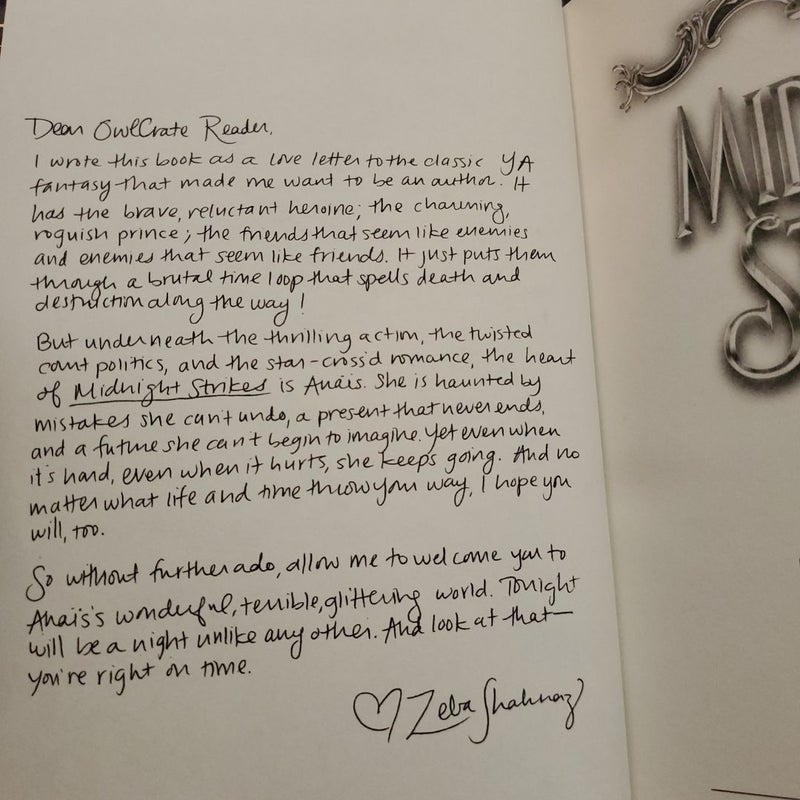 Dear OwlCrate Reader,
I wrote this book as a love letter to the classic YA
fantasy that made me want to be an author. It
has the brave, reluctant heroine; the charming,
roguish prince; the friends that seem like enemies
and enemies that seem like friends. It just puts them
through a brutal time loop that spells death and
destruction along the way!
But underneath the thrilling action, the twisted
court politics, and the star-cross'd romance, the heart
of Midnight Strikes is Anaïs. She is haunted by
mistakes she can't undo, a present that never ends,
and a future she can't begin to imagine. Yet even when
it's hard, even when it hurts, she keeps going. And no
matter what life and time throw your way, I hope you
will, too.
So without further ado, allow me to welcome you to
Anaïs's wonderful, terrible, glittering world. Tonight
will be a night unlike any other. And look at that—
you're right on time.
Zeba Shahnaz
MID
ST